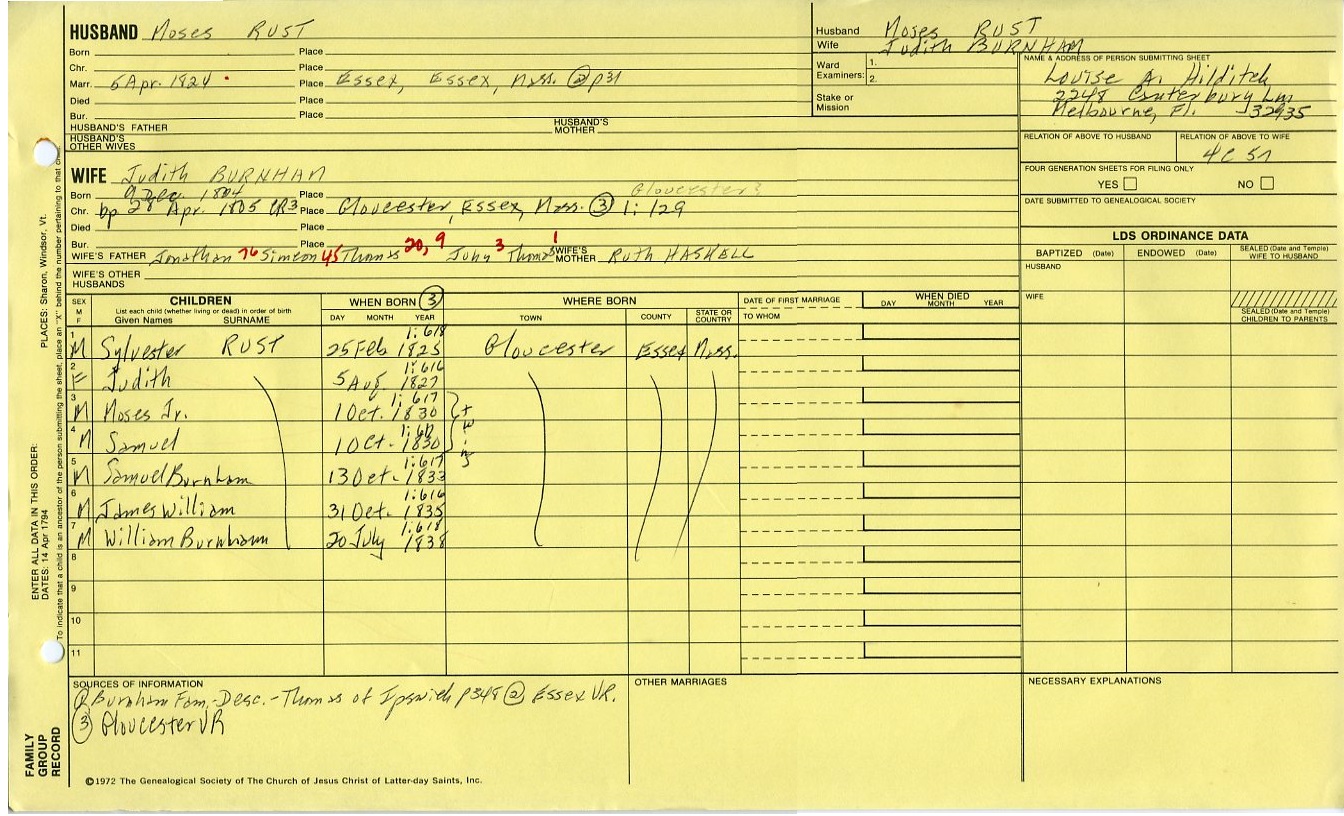 HUSBAND Moses RUST
Born Place
Chr. Place
Marr. 6 Apr. 1824 Place Essex, Essex, Mass. ② p31
Died Place
Bur. Place
HUSBAND'S FATHER HUSBAND'S MOTHER
HUSBAND'S OTHER WIVES
Husband Moses RUST
Wife Judith BURNHAM
Ward Examiners: 1.
2.
Stake or Mission
NAME & ADDRESS OF PERSON SUBMITTING SHEET
Louise A. Hilditch
2248 Canterbury Ln
Melbourne, Fl. 32935
RELATION OF ABOVE TO HUSBAND RELATION OF ABOVE TO WIFE
4C 5R
FOUR GENERATION SHEETS FOR FILING ONLY
YES NO
DATE SUBMITTED TO GENEALOGICAL SOCIETY
LDS ORDINANCE DATA
BAPTIZED (Date) ENDOWED (Date) SEALED (Date and Temple) WIFE TO HUSBAND
HUSBAND
WIFE
SEALED (Date and Temple) CHILDREN TO PARENTS
WIFE Judith BURNHAM
Born 9 Dec. 1804 Place Gloucester
Chr. bp 28 Apr. 1805 CR3 Place Gloucester, Essex, Mass. ③ 1: 129
Died Place
Bur. Place
WIFE'S FATHER Jonathan 76 Simeon 45 Thomas 20, 9 John 3 Thomas 1 WIFE'S MOTHER Ruth HASKELL
WIFE'S OTHER HUSBANDS
SEX M F CHILDREN WHEN BORN ③ WHERE BORN DATE OF FIRST MARRIAGE WHEN DIED
List each child (whether living or dead) in order of birth
Given Names SURNAME DAY MONTH YEAR TOWN COUNTY STATE OR COUNTRY TO WHOM DAY MONTH YEAR
1 M Sylvester RUST 25 Feb 1825 1:618 Gloucester Essex Mass.
2 F Judith 5 Aug. 1827 1:616
3 M Moses Jr. 1 Oct. 1830 1:617 twins
4 M Samuel 1 Oct. 1830 1:617
5 M Samuel Burnham 13 Oct. 1833 1:617
6 M James William 31 Oct. 1835 1:616
7 M William Burnham 20 July 1838 1:618
8
9
10
11
SOURCES OF INFORMATION
① Burnham Fam.-Desc.-Thomas of Ipswich p348 ② Essex VR.
③ Gloucester VR
OTHER MARRIAGES
NECESSARY EXPLANATIONS
©1972 The Genealogical Society of The Church of Jesus Christ of Latter-day Saints, Inc.
FAMILY GROUP RECORD
ENTER ALL DATA IN THIS ORDER:
DATES: 14 Apr 1794 PLACES: Sharon, Windsor, Vt.
To indicate that a child is an ancestor of the person submitting the sheet, place an "X" behind the number pertaining to that